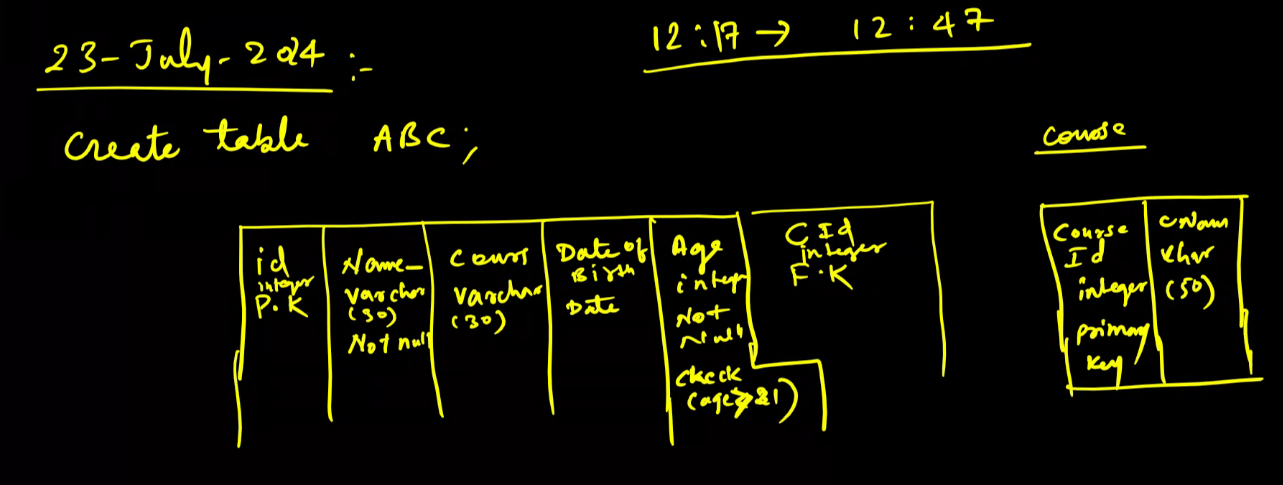 23-July-2024 :-
12:17 → 12:47
Create table ABC;
Course
id
integer
P.K
Name
varchar
(30)
Not null
Cours
varchar
(30)
Date of
Birth
Date
Age
integer
Not
null
check
(age>21)
CId
integer
F.K
Course
Id
integer
primary
key
cNam
vhar
(50)